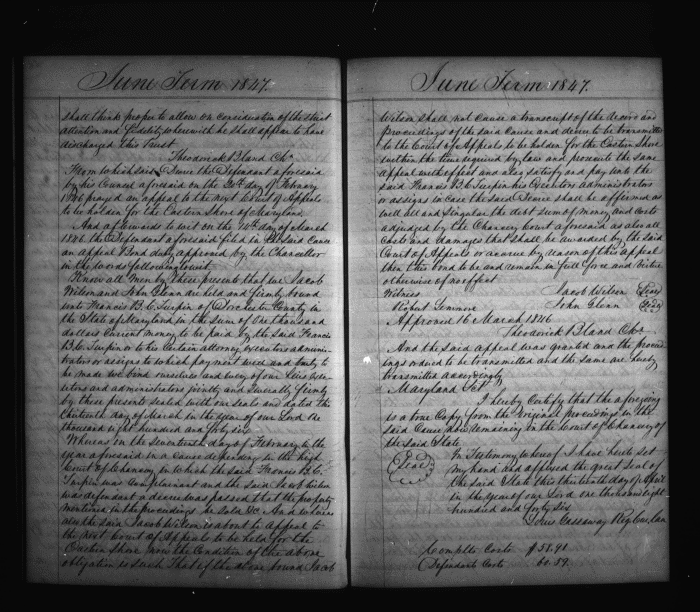 June Term 1847.
shall think proper to allow on consideration of the strict
attention and fidelity wherewith he shall appear to have
discharged this Trust
Theodorick Bland Chr
From which said Decree the Defendant aforesaid
by his Counsel aforesaid on the day of February
1846 prayed an appeal to the next Court of Appeals
to be holden for the Eastern Shore of Maryland.
And afterwards to wit on the day of March
1846 the Defendant aforesaid filed in the said Cause
an appeal Bond duly approved by the Chancellor
in the words following to wit
Know all Men by these presents that we Jacob
Wilson and John Glenn are held and firmly bound
unto Francis B. C. Turpin of Dorchester County in
the State of Maryland in the sum of One thousand
dollars current money to be paid by the said Francis
B. C. Turpin to his Certain attorney executors adminis-
trators or assigns to which payment well and truly to
be made we bond ourselves and every of our heirs exe-
cutors and administrators jointly and Severally firmly
by these present sealed with our seals and dated this
thirteenth day of March in the year of our Lord One
thousand eight hundred and forty six
Whereas on the Seventeenth day of February in the
year aforesaid in a cause depending in the high
Court of Chancery in which the said Francis B. C.
Turpin was Complainant and the said Jacob Wilson
was defendant a decree was passed that the property
mentioned in the proceedings be sold &c. And whereas
also the said Jacob Wilson is about to appeal to
the next Court of Appeals to be held for the
Eastern Shore now the Condition of the above
obligation is such that if the above bound Jacob
June Term 1847.
Wilson shall not cause a transcript of the decree and
proceedings of the said Cause and decree to be transmitted
to the Court of Appeals to be holden for the Eastern Shore
within the time required by law and prosecute the same
appeal with effect and also satisfy and pay unto the
said Francis B. C. Turpin his Executors administrators
or assigns in Case the said Decree shall be affirmed as
well all and Singular the debt sum of money and costs
adjudged by the Chancery Court aforesaid as also all
Costs and damages that shall be awarded by the said
Court of Appeals or accrue by reason of this appeal
then this bond to be and remain in full force and virtue
otherwise of no effect
Witness Jacob Wilson (Seal)
Robert John Glenn (Seal)
Approved 16 March 1846
Theodorick Bland Chr
And the said appeal was granted and the proceed-
ings ordered to be transmitted and the same are hereby
transmitted accordingly
Maryland Sct
I hereby Certify that the aforegoing
is a true Copy from the Original proceedings in the
said Cause now remaining in the Court of Chancery of
the said State
(Seal) In Testimony whereof I have hereto set
my hand and affixed the great Seal of
the said State this thirteenth day of April
in the year of our Lord one thousand eight
hundred and forty Six
Louis Gassaway Reg Cur Can
Complts Costs $58.91
Defendants Costs 60.59.